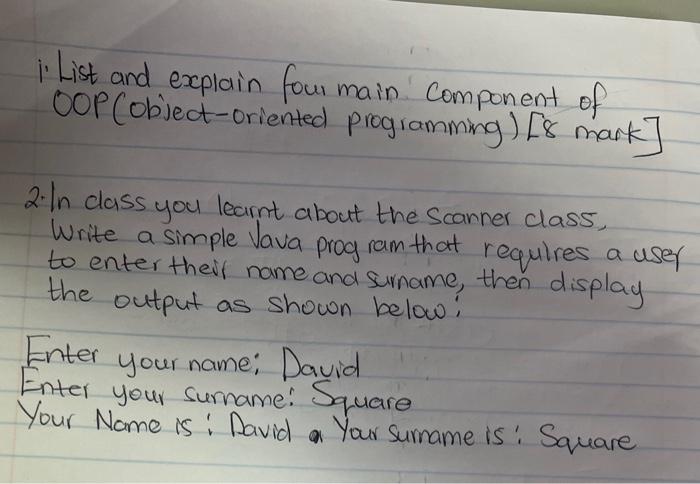 1. List and explain four main component of
OOP(object-oriented programming) [8 mark]
2. In class you learnt about the Scanner class,
Write a simple Java program that requires a user
to enter their name and surname, then display
the output as shown below:
Enter your name: David
Enter your surname: Square
Your Name is : David a Your Surname is : Square